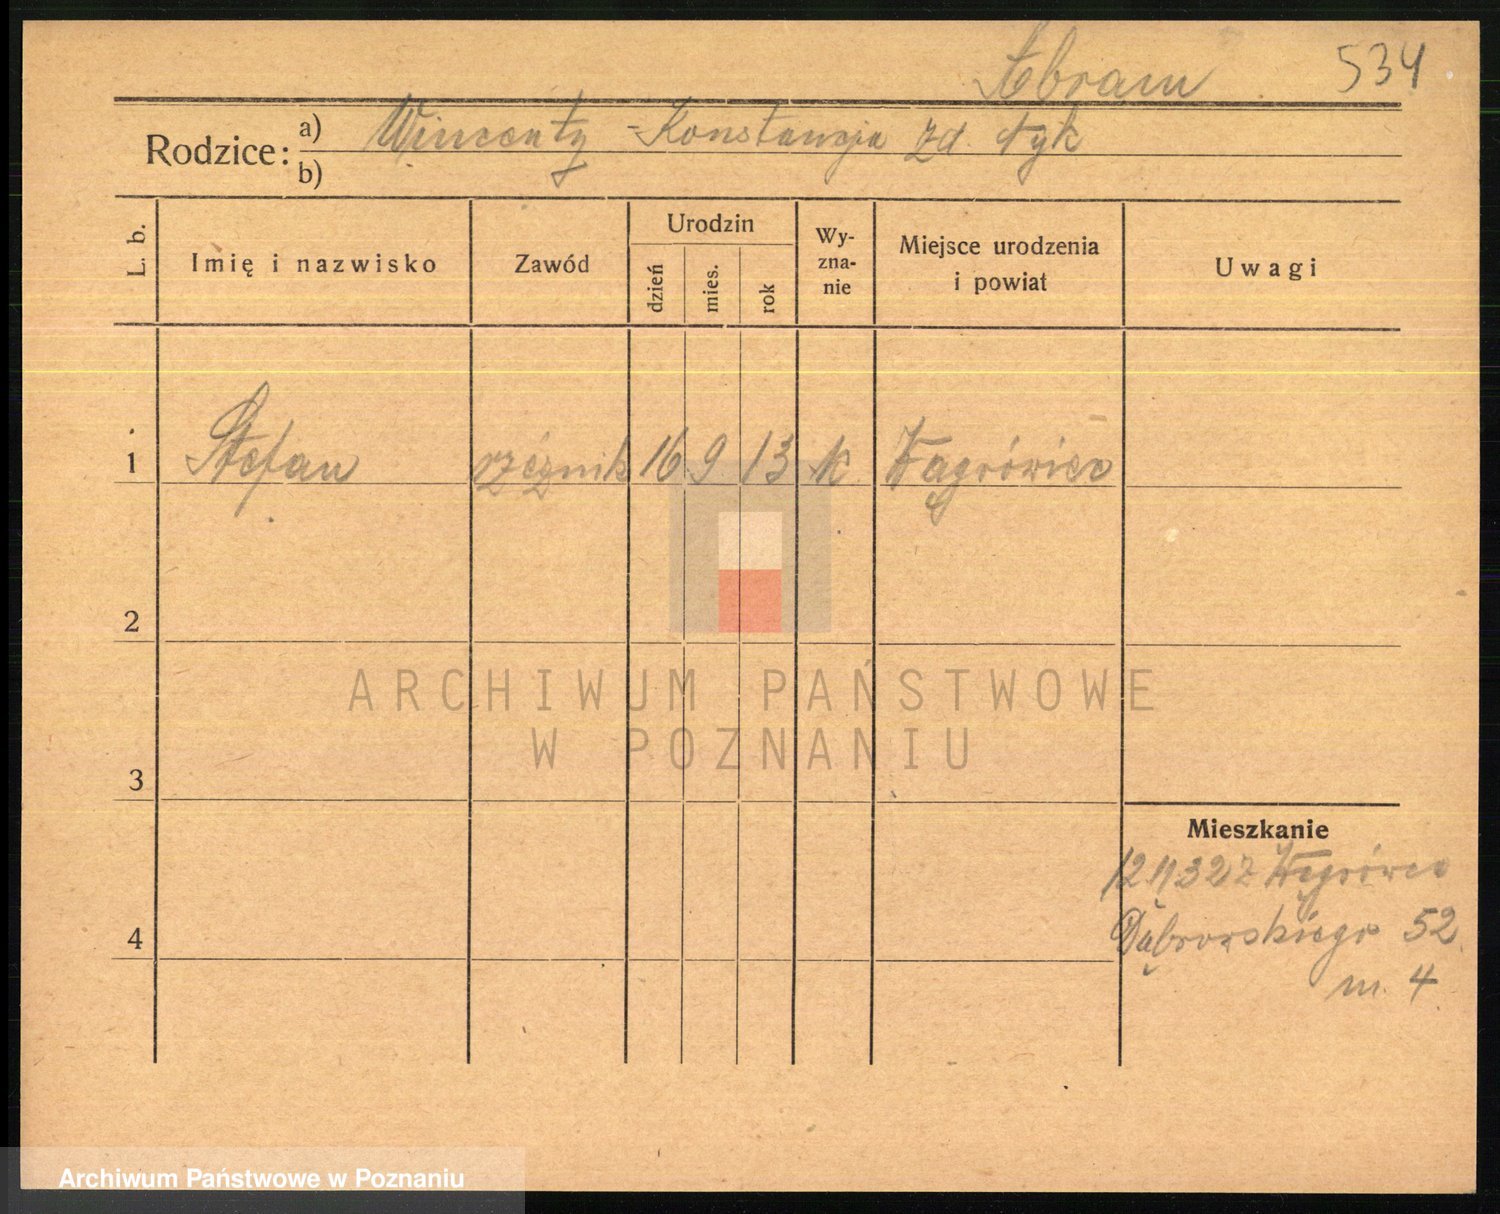 Abram 534
Rodzice: a) Wincenty - Konstancja zd.
b)
L. b.
Imię i nazwisko
Zawód
Urodzin
dzień
mies.
rok
Wy-
zna-
nie
Miejsce urodzenia
i powiat
Uwagi
1 Stefan rzeźnik 16 9 13 k Wągrówiec
2
3
4
Mieszkanie
12 11 32 z Wągrówca
Dąbrowskiego 52
m. 4
ARCHIWUM PAŃSTWOWE
W POZNANIU
Archiwum Państwowe w Poznaniu